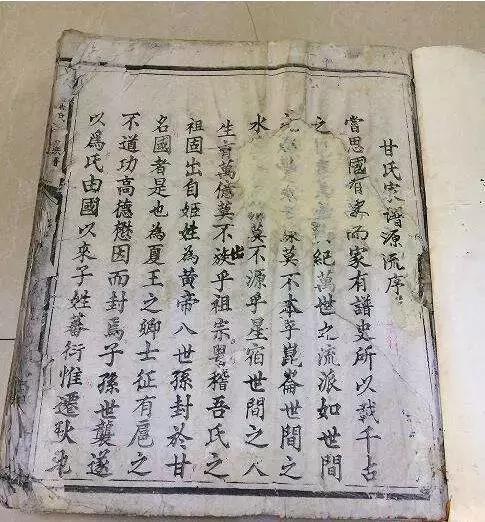 甘氏宗譜源流序
嘗思國有史而家有譜史所以載千古
之紀萬世之流派如世間
莫不本乎崑崙世間之
水莫不源乎星宿世間之人
生育萬億莫不出族乎祖宗粤稽吾氏之
祖固出自姬姓為黄帝八世孫封於甘
名國者是也為夏王之卿士征有扈之
不道功高德懋因而封焉子孫世襲遂
以爲氏由國以來子姓蕃衍惟遷